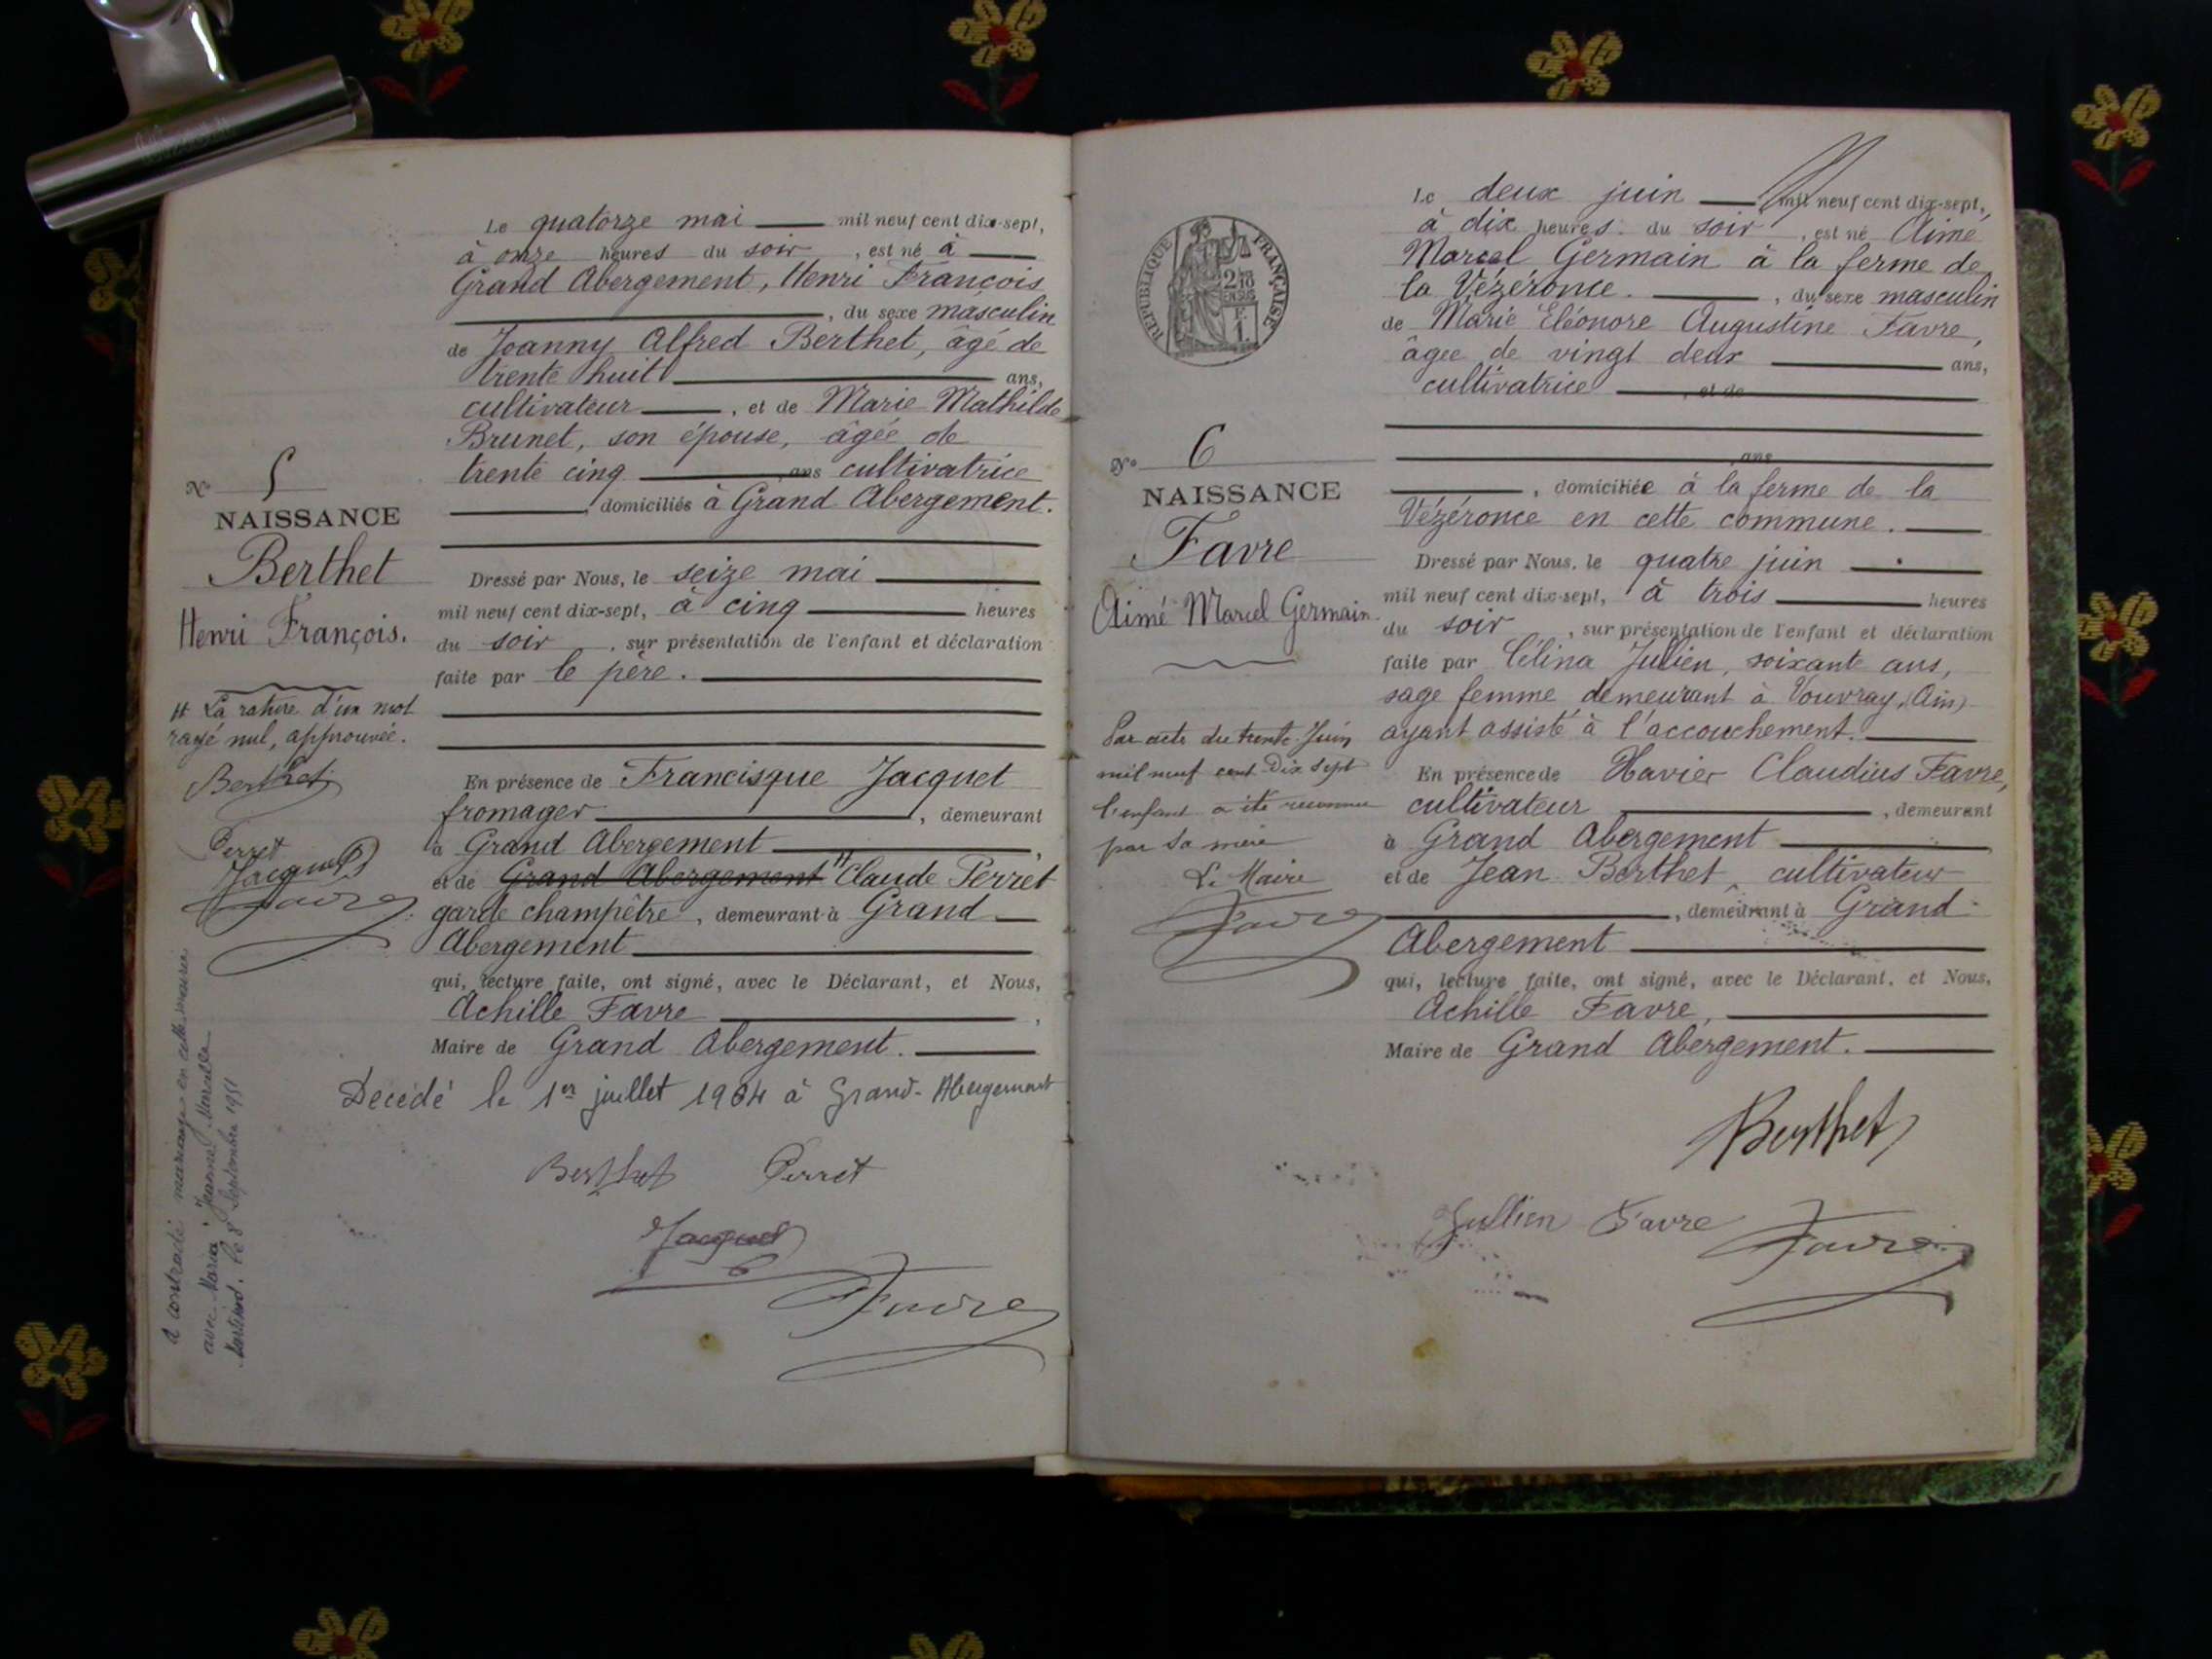 Le quatorze mai mil neuf cent dix-sept,
à onze heures du soir, est né à
Grand Abergement, Henri François
, du sexe masculin
de Joanny Alfred Berthet, âgé de
trente huit ans,
cultivateur, et de Marie Mathilde
Brunet, son épouse, âgée de
trente cinq ans cultivatrice
, domiciliés à Grand Abergement.
N° 5
NAISSANCE
Berthet
Henri François.
Dressé par Nous, le seize mai
mil neuf cent dix-sept, à cinq heures
du soir, sur présentation de l'enfant et déclaration
faite par le père.
# La rature d'un mot
rayé nul, approuvée.
Berthet
Perret
Jacquet
Favre
En présence de Francisque Jacquet
fromager, demeurant
à Grand Abergement,
et de Grand Abergement # Claude Perret
garde champêtre, demeurant à Grand
Abergement
qui, lecture faite, ont signé, avec le Déclarant, et Nous,
Achille Favre,
Maire de Grand Abergement.
Décédé le 1er juillet 1964 à Grand-Abergement
Berthet Perret
Jacquet
Favre
a contracté mariage en cette mairie
avec Maria Jeanne Marcelle
Martinod. le 8 Septembre 1951
REPUBLIQUE FRANÇAISE
2/10
EN SUS
F.
1.
Le deux juin mil neuf cent dix-sept,
à dix heures du soir, est né Aimé
Marcel Germain à la ferme de
la Vézéronce., du sexe masculin
de Marie Eléonore Augustine Favre,
âgée de vingt deux ans,
cultivatrice, et de
ans
, domiciliée à la ferme de la
Vézéronce en cette commune.
N° 6
NAISSANCE
Favre
Aimé Marcel Germain.
Dressé par Nous, le quatre juin
mil neuf cent dix-sept, à trois heures
du soir, sur présentation de l'enfant et déclaration
faite par Célina Julien, soixante ans,
sage femme, demeurant à Vouvray, (Ain)
ayant assisté à l'accouchement.
Par acte du trente Juin
mil neuf cent Dix sept
l'enfant a été reconnu
par sa mère
Le Maire
Favre
En présence de Xavier Claudius Favre,
cultivateur, demeurant
à Grand Abergement
et de Jean Berthet, cultivateur
, demeurant à Grand
Abergement
qui, lecture faite, ont signé, avec le Déclarant, et Nous,
Achille Favre,
Maire de Grand Abergement.
Berthet
Jullien Favre Favre